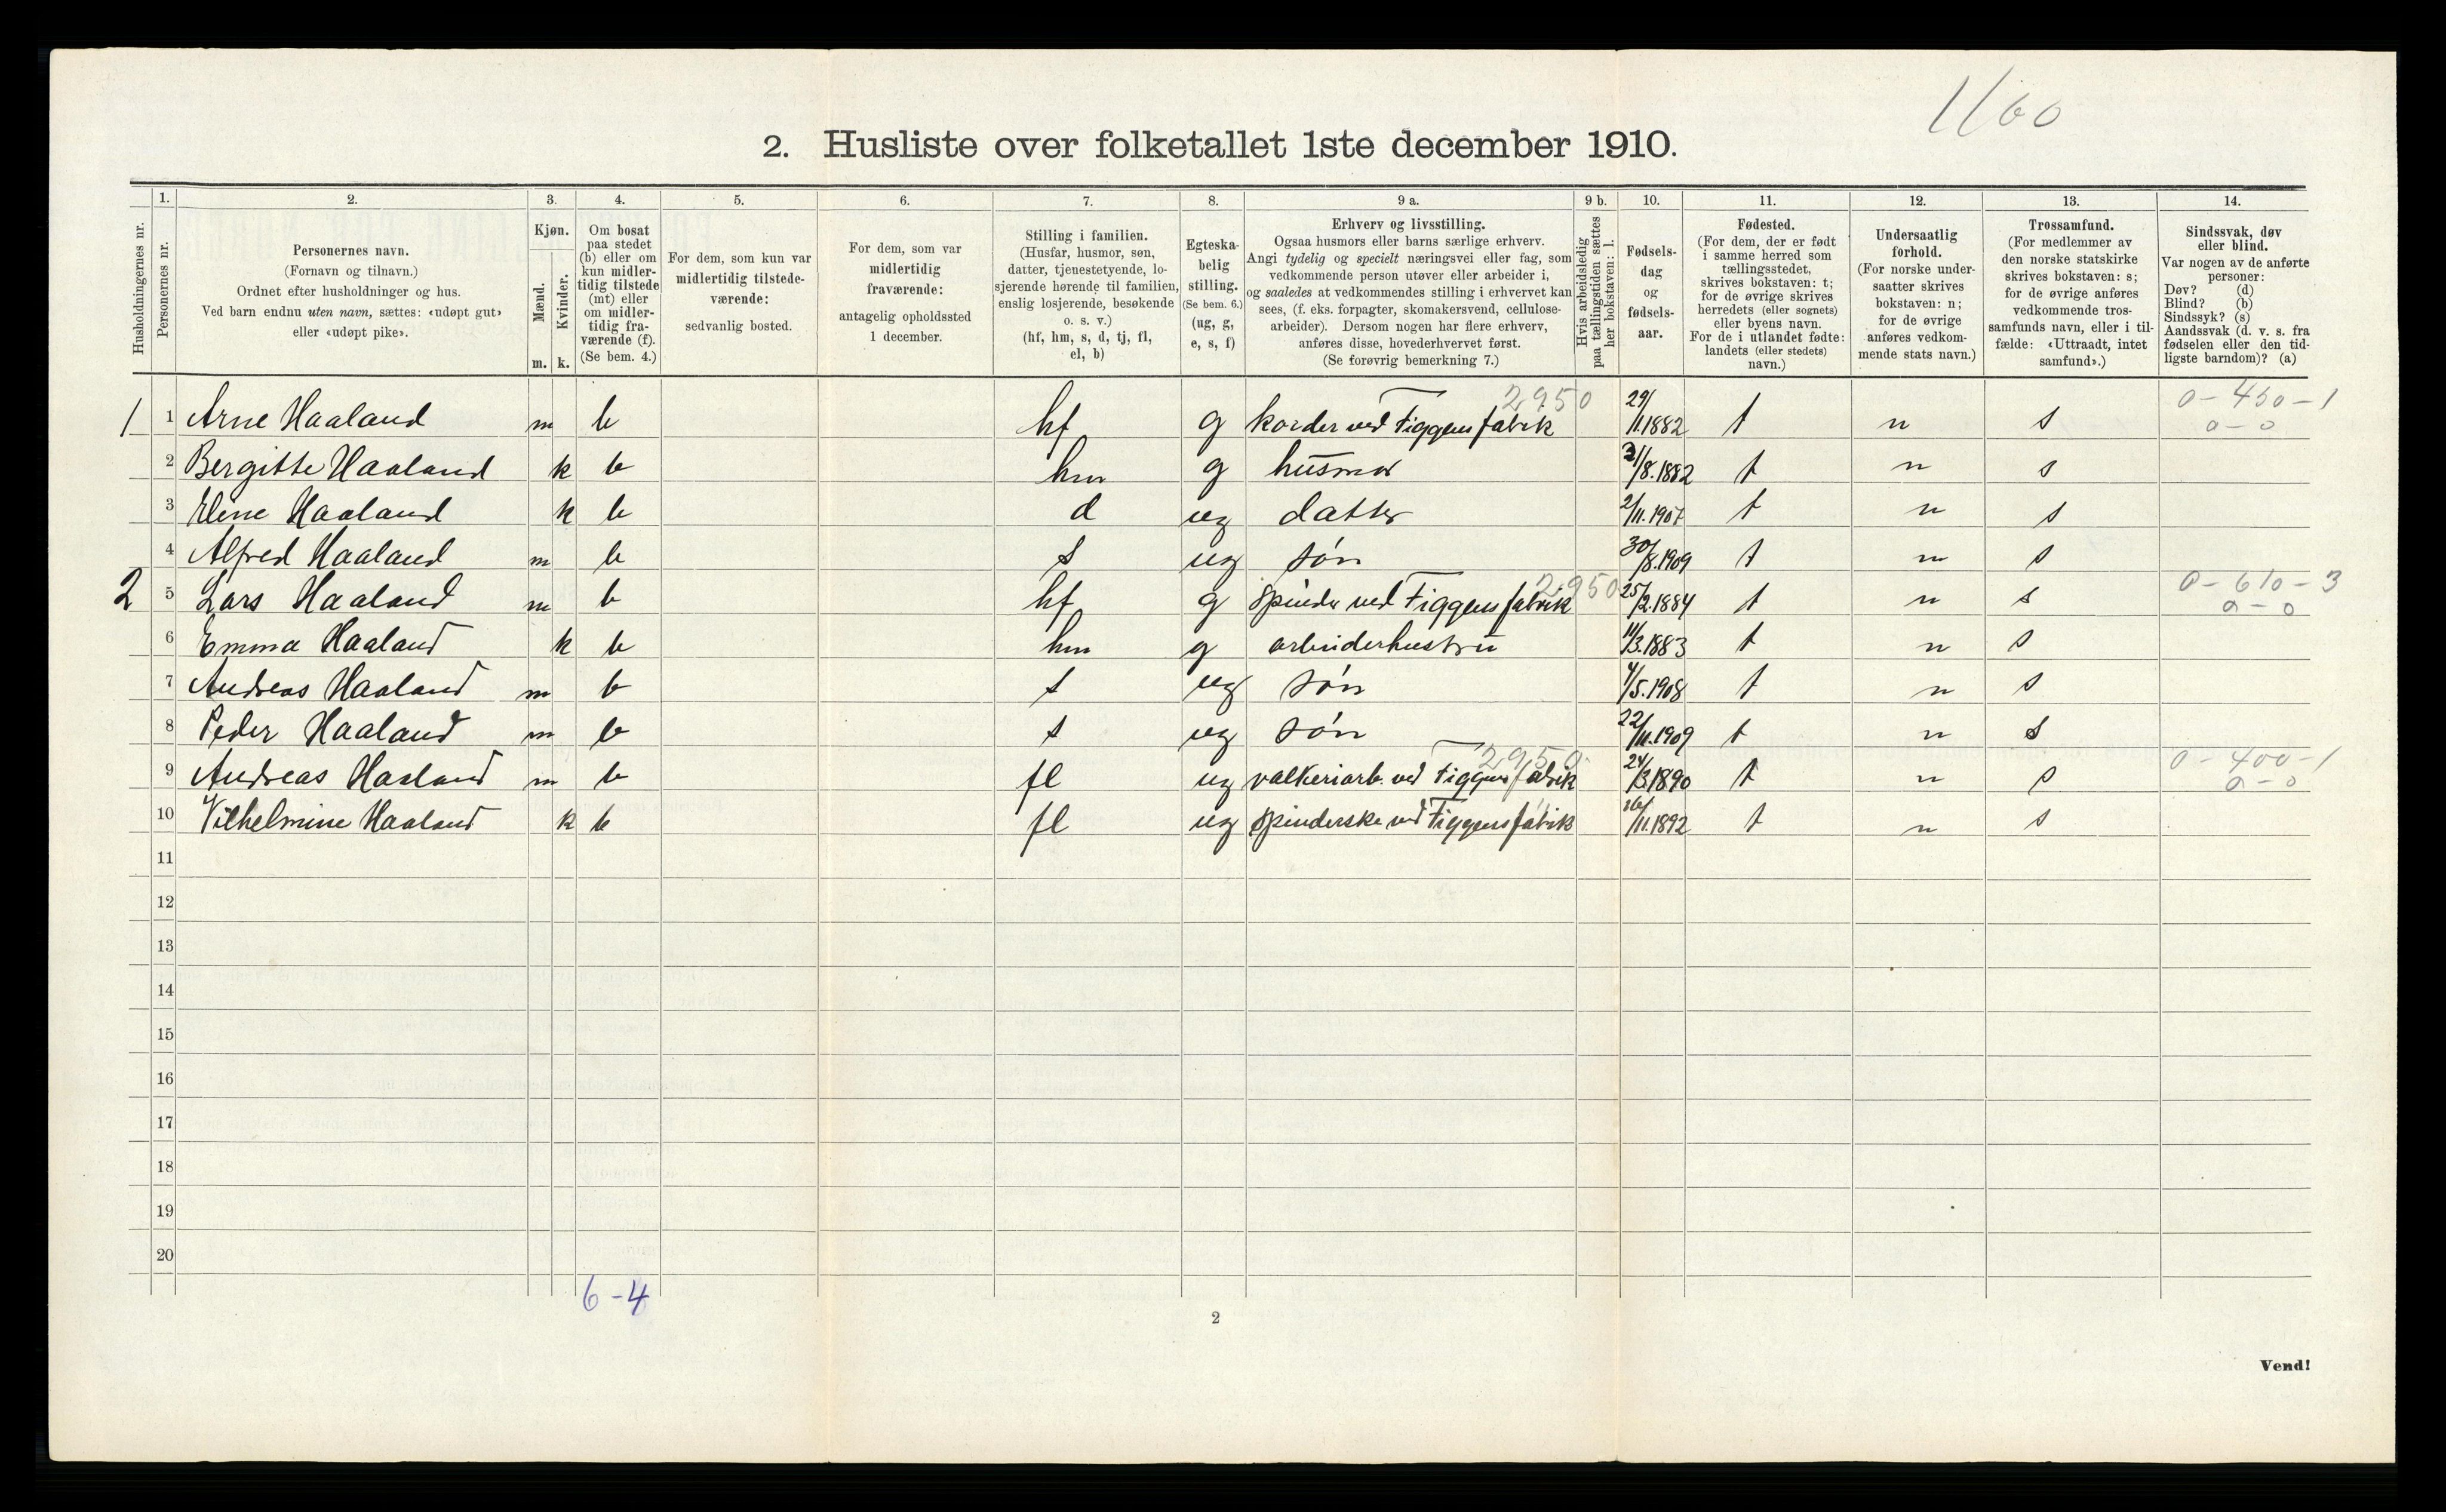 1/60
2. Husliste over folketallet 1ste december 1910.
Husholdningernes nr.
1.
Personernes nr.
2.
Personernes navn.
(Fornavn og tilnavn.)
Ordnet efter husholdninger og hus.
Ved barn endnu uten navn, sættes: «udøpt gut»
eller «udøpt pike».
3.
Kjøn.
Mænd.
Kvinder.
m. k.
4.
Om bosat
paa stedet
(b) eller om
kun midler-
tidig tilstede
(mt) eller
om midler-
tidig fra-
værende (f).
(Se bem. 4.)
5.
For dem, som kun var
midlertidig tilstede-
værende:
sedvanlig bosted.
6.
For dem, som var
midlertidig
fraværende:
antagelig opholdssted
1 december.
7.
Stilling i familien.
(Husfar, husmor, søn,
datter, tjenestetyende, lo-
sjerende hørende til familien,
enslig losjerende, besøkende
o. s. v.)
(hf, hm, s, d, tj, fl,
el, b)
8.
Egteska-
belig
stilling.
(Se bem. 6.)
(ug, g,
e, s, f)
9 a.
Erhverv og livsstilling.
Ogsaa husmors eller barns særlige erhverv.
Angi tydelig og specielt næringsvei eller fag, som
vedkommende person utøver eller arbeider i,
og saaledes at vedkommendes stilling i erhvervet kan
sees, (f. eks. forpagter, skomakersvend, cellulose-
arbeider). Dersom nogen har flere erhverv,
anføres disse, hovederhvervet først.
(Se forøvrig bemerkning 7.)
9 b.
Hvis arbeidsledig
paa tællingstiden sættes
her bokstaven: l.
10.
Fødsels-
dag
og
fødsels-
aar.
11.
Fødested.
(For dem, der er født
i samme herred som
tællingsstedet,
skrives bokstaven: t;
for de øvrige skrives
herredets (eller sognets)
eller byens navn.
For de i utlandet fødte:
landets (eller stedets)
navn.)
12.
Undersaatlig
forhold.
(For norske under-
saatter skrives
bokstaven: n;
for de øvrige
anføres vedkom-
mende stats navn.)
13.
Trossamfund.
(For medlemmer av
den norske statskirke
skrives bokstaven: s;
for de øvrige anføres
vedkommende tros-
samfunds navn, eller i til-
fælde: «Uttraadt, intet
samfund».)
14.
Sindssvak, døv
eller blind.
Var nogen av de anførte
personer:
Døv? (d)
Blind? (b)
Sindssyk? (s)
Aandssvak (d. v. s. fra
fødselen eller den tid-
ligste barndom)? (a)
1 1 Arne Haaland m b hf g korder ved Figgens fabrik 2950 29/11.1882 t n s 0-450-1 0-0
2 Bergitte Haaland k b hm g husmor /8.1882 t n s
3 Elene Haaland k b d ug datter 2/11.1907 t n s
4 Alfred Haaland m b s ug søn 30/8.1909 t n s
2 5 Lars Haaland m b hf g spinder ved Figgens fabrik 2950 25/2.1884 t n s 0-610-3 0-0
6 Emma Haaland k b hm g arbeiderhustru 11/3.1883 t n s
7 Andreas Haaland m b s ug søn /5.1908 t n s
8 Peder Haaland m b s ug søn 22/11.1909 t n s
9 Andreas Haaland m b fl ug valkeriarb. ved Figgens fabrik 2950 24/3.1890 t n s 0-400-1 0-0
10 Vilhelmine Haaland k b fl ug spinderske ved Figgens fabrik 16/11.1892 t n s
11
12
13
14
15
16
17
18
19
20
6-4
2
Vend!